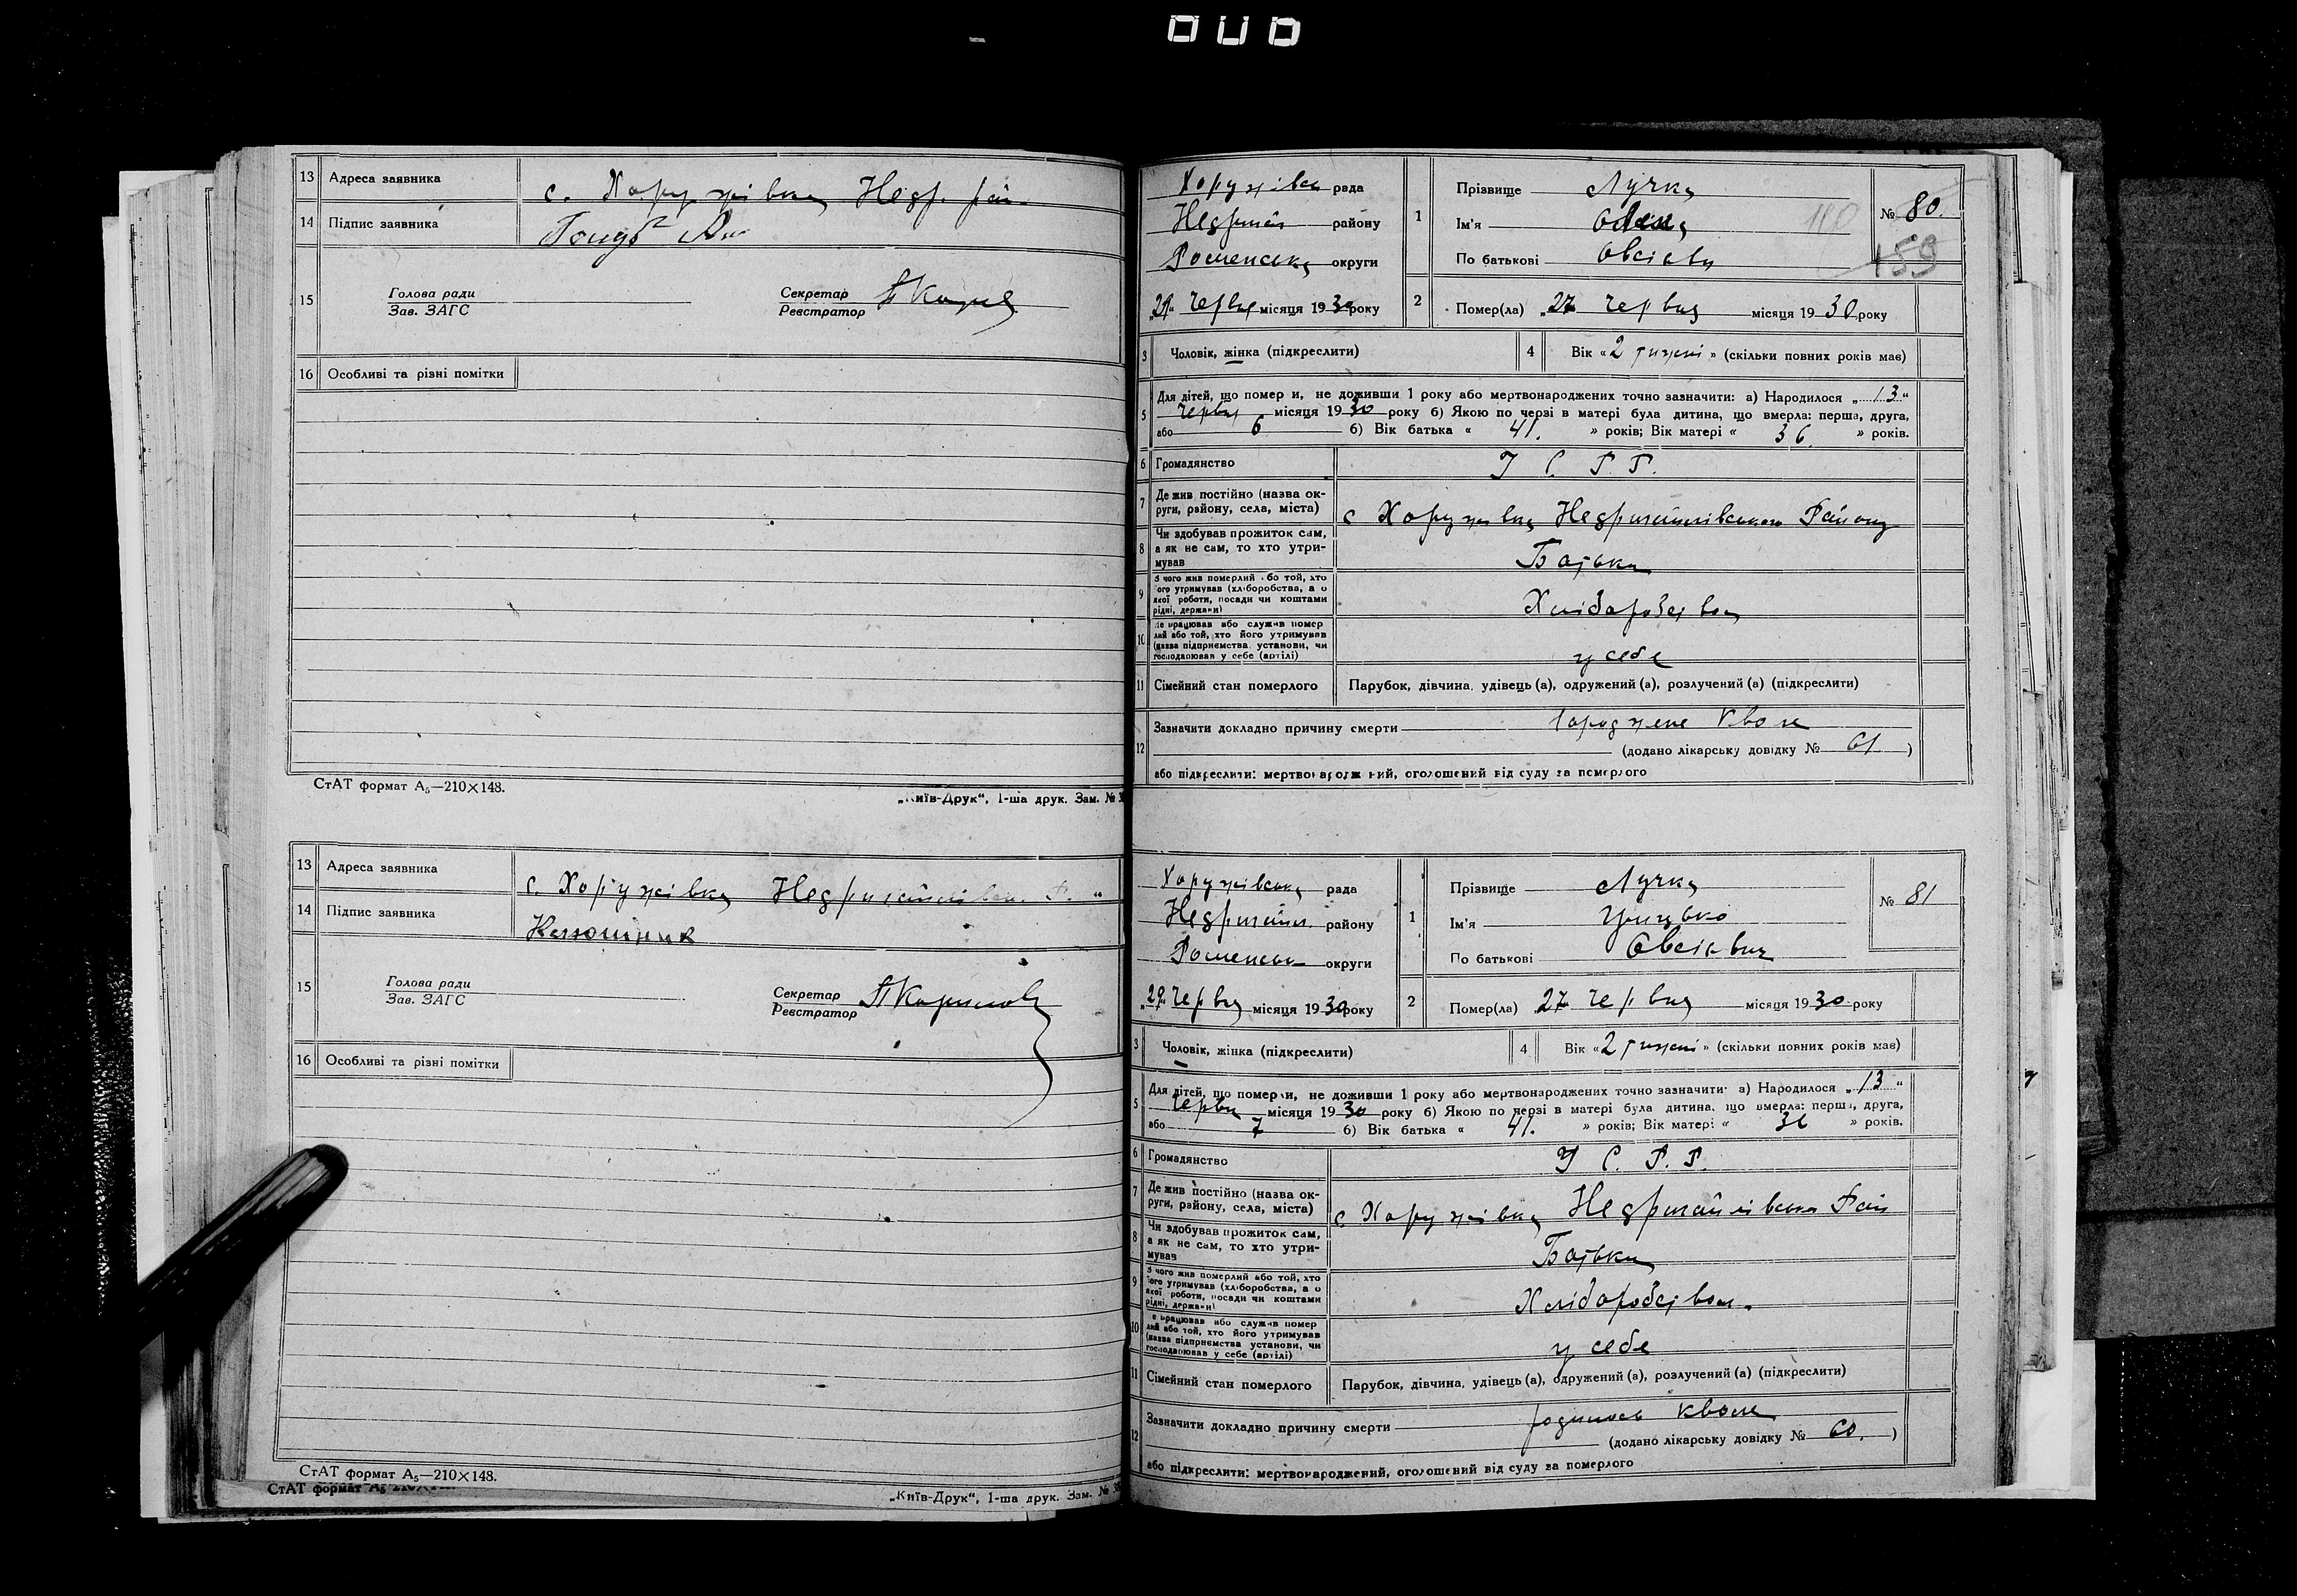 13 Адреса заявника с. Хоружівка Недр. рай
14 Підпис заявника Голуб
15 Голова ради Секретар
Зав. ЗАГС Реєстратор
16 Особливі та різні помітки
СтАТ формат А5—210×148.
„Київ-Друк“, 1-ша друк. Зам. №
13 Адреса заявника с. Хоружівка Недригайлівськ. Р.
14 Підпис заявника
15 Голова ради Секретар
Зав. ЗАГС Реєстратор
16 Особливі та різні помітки
СтАТ формат А5—210×148.
СтАТ формат А5
„Київ-Друк“, 1-ша друк. Зам. №
Хоружівсь рада
Недригай району
Роменська округи
„29“ Червня місяця 1930 року
1 Прізвище Лучка
Ім'я Олена
По батькові Овсіївн
№ 80.
159
2 Помер(ла) „27 Червня місяця 1930 року
3 Чоловік, жінка (підкреслити) 4 Вік «2 тижні» (скільки повних років має)
5 Для дітей, що померли, не доживши 1 року або мертвонароджених точно зазначити: а) Народилося „13“
Червня місяця 1930 року б) Якою по черзі в матері була дитина, що вмерла: перша, друга,
або 6 б) Вік батька « 41. » років; Вік матері « 36. » років.
6 Громадянство У С. Р. Р.
7 Де жив постійно (назва округи, району, села, міста) с Хоружівка Недригайлівського Району
8 Чи здобував прожиток сам,
а як не сам, то хто утримував Батьки
9 З чого жив померлий або той, хто
його утримував (хліборобства, а о
якої роботи, посади чи коштами
рідні, держави) Хліборобство
10 Де працював або служив помер
лий або той, хто його утримував
(назва підприємства установи, чи
господарював у себе (артілі) у себе
11 Сімейний стан померлого Парубок, дівчина, удівець (а), одружений (а), розлучений (а) (підкреслити)
12 Зазначити докладно причину смерти Кволе
(додано лікарську довідку № 61 )
або підкреслити: мертвонароджений, оголошений від суду за померлого
Хоружівська рада
Недригайл. району
Роменськ округи
„29“ Червня місяця 1930 року
1 Прізвище Лучка
Ім'я Грицько
По батькові Овсієвич
№ 81
2 Помер(ла) 27 Червня місяця 1930 року
3 Чоловік, жінка (підкреслити) 4 Вік «2 тижні» (скільки повних років має)
5 Для дітей, що померли, не доживши 1 року або мертвонароджених точно зазначити: а) Народилося „13“
Червн місяця 1930 року б) Якою по черзі в матері була дитина, що вмерла: перша, друга,
або 7 б) Вік батька « 41. » років; Вік матері « 36 » років.
6 Громадянство У С. Р. Р.
7 Де жив постійно (назва округи, району, села, міста) с Хоружівка Недригайлівськ Рай
8 Чи здобував прожиток сам,
а як не сам, то хто утримував Батьки
9 З чого жив померлий або той, хто
його утримував (хліборобства, а о
якої роботи, посади чи коштами
рідні, держави) Хліборобство.
10 Де працював або служив помер
лий або той, хто його утримував
(назва підприємства установи, чи
господарював у себе (артілі) у себе
11 Сімейний стан померлого Парубок, дівчина, удівець (а), одружений (а), розлучений (а) (підкреслити)
12 Зазначити докладно причину смерти родилось кволе
(додано лікарську довідку № 60. )
або підкреслити: мертвонароджений, оголошений від суду за померлого